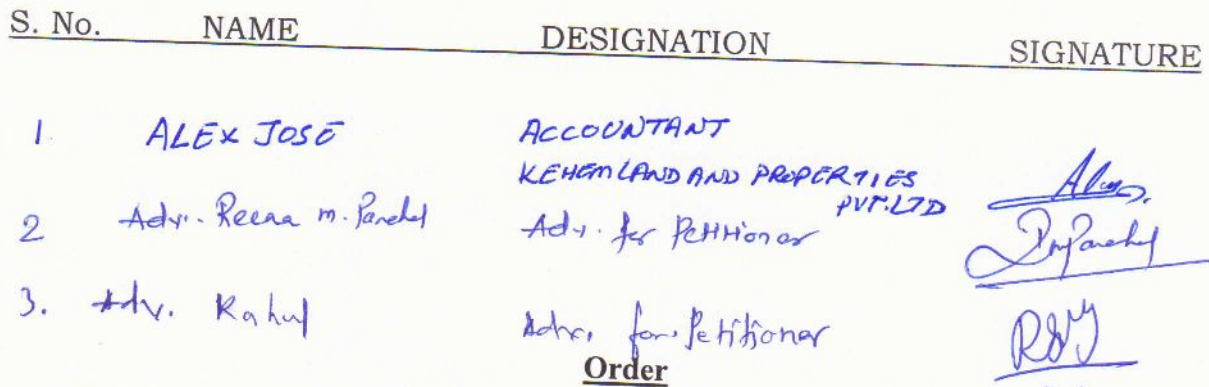 S. No. NAME DESIGNATION SIGNATURE
1. ALEX JOSE ACCOUNTANT
KEHEM LAND AND PROPERTIES
PVT. LTD
2 Adv. Reena M. Adv. for Petitioner
3. Adv. Rahul Adv. for Petitioner
Order